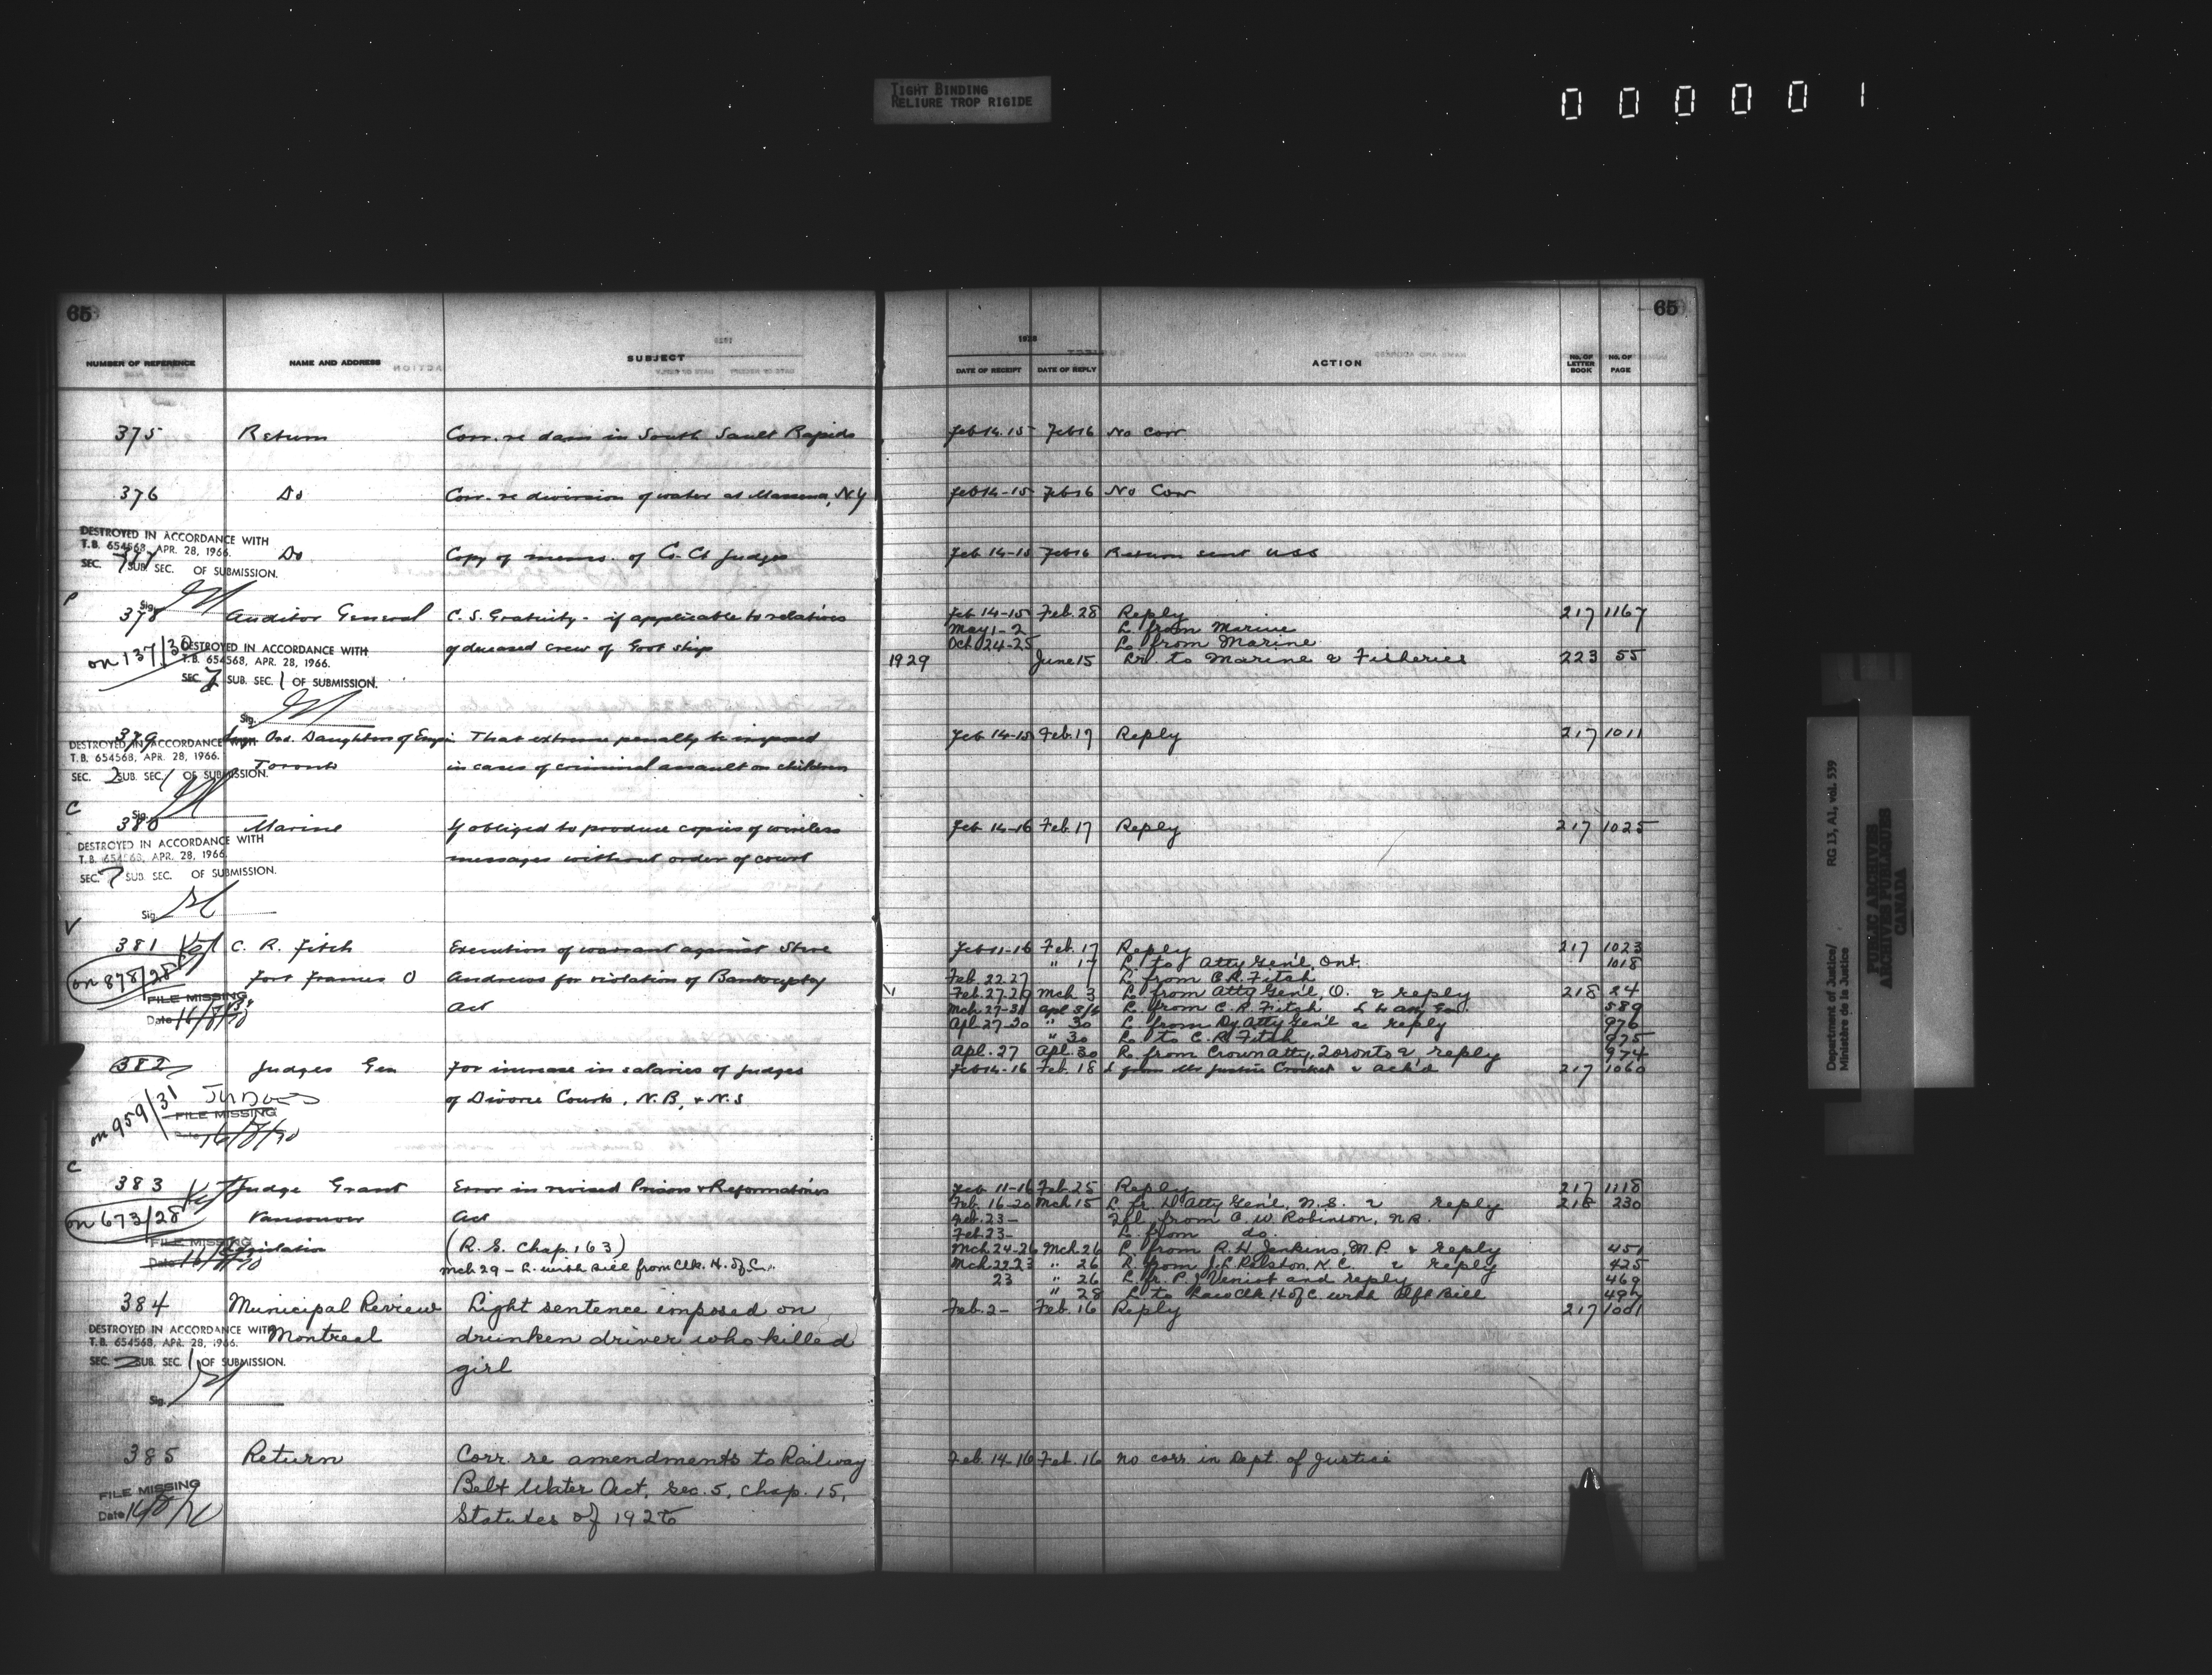 TIGHT BINDING
RELIURE TROP RIGIDE
000001
65
NUMBER OF REFERENCE NAME AND ADDRESS SUBJECT
375 Return Corr. re dam in South Sault Rapids
376 Do Corr. re diversion of water at Massena, N.Y
DESTROYED IN ACCORDANCE WITH
T.B. 654568, APR. 28, 1966.
377 Do Copy of memo. of Co. Ct Judges
SEC. 7 SUB. SEC. OF SUBMISSION.
Sig.
P
378 Auditor General C. S. Gratuity - if applicable to relatives
of deceased crew of Govt ships
on 137/30
DESTROYED IN ACCORDANCE WITH
T.B. 654568, APR. 28, 1966.
SEC. 2 SUB. SEC. 1 OF SUBMISSION.
Sig.
379 Ord. Daughters of Empire That extreme penalty be imposed
DESTROYED IN ACCORDANCE WITH
T.B. 654568, APR. 28, 1966.
Toronto in cases of criminal assault on children
SEC. 2 SUB. SEC. 1 OF SUBMISSION.
C
Sig.
380 Marine If obliged to produce copies of wireless
DESTROYED IN ACCORDANCE WITH
T.B. 654568, APR. 28, 1966.
messages without order of court
SEC. 7 SUB. SEC. OF SUBMISSION.
Sig.
V
381 C. R. Fitch Execution of warrant against Steve
on 878/28 Fort Frances O Andrews for violation of Bankruptcy
FILE MISSING Act
Date 16/8/70
382 Judges Gen For increase in salaries of Judges
of Divorce Courts, N.B. & N.S
on 959/31 JUDGES
FILE MISSING
Date 16/8/70
C
383 Judge Grant Error in revised Prisons & Reformatories
on 673/28 Vancouver Act
FILE MISSING Legislation (R.S. Chap. 163)
Date 16/8/70
Mch 29 - L. with Bill from Clk. H. of C.
384 Municipal Review Light sentence imposed on
DESTROYED IN ACCORDANCE WITH
T.B. 654568, APR. 28, 1966.
Montreal drunken driver who killed
SEC. 2 SUB. SEC. 1 OF SUBMISSION.
girl
Sig.
385 Return Corr. re amendments to Railway
FILE MISSING Belt Water Act, Sec. 5, Chap. 15,
Date 16/8/70 Statutes of 1928
65
1928
DATE OF RECEIPT DATE OF REPLY ACTION NO. OF LETTER BOOK NO. OF PAGE
Feb 14-15 Feb 16 No Corr
Feb 14-15 Feb 16 No Corr
Feb 14-15 Feb 16 Return sent USS
Feb 14-15 Feb. 28 Reply 217 1167
May 1-2 L. from Marine
Oct 24-25 L. from Marine
1929 June 15 Lr. to Marine & Fisheries 223 55
Feb 14-15 Feb. 17 Reply 217 1011
Feb 14-16 Feb. 17 Reply 217 1025
Feb 11-16 Feb. 17 Reply 217 1023
" 17 L. to Atty Gen'l, Ont. 1018
Feb. 22.27 L. from C.R. Fitch
Feb. 27.29 Mch 3 L. from Atty Gen'l, O. & reply 218 24
Mch 27-31 Apl 3/6 L. from C. R. Fitch 589
Apl 27-30 " 30 L. from Dy. Atty Gen'l & reply 976
" 30 L. to C. R. Fitch 975
Apl. 27 Apl. 30 L. from Crown Atty, Toronto & reply 974
Feb 14-16 Feb. 18 L from Mr Justice Crocket & ack'd 217 1060
Feb 11-16 Feb. 25 Reply 217 1118
Feb. 16-20 Mch 15 L. fr. D Atty Gen'l, N.S. & reply 218 230
Feb. 23- from C. W. Robinson, N.B.
Feb. 23- L. from do.
Mch. 24-26 Mch. 26 L. from R. H. Jenkins, M.P. & reply 451
Mch 22-23 " 26 L. from J. L. Ralston, K.C. & reply 425
23 " 26 L. fr. P. J. Veniot and reply 469
" 28 L. to Law Clk. H. of C. with Dft Bill 497
Feb. 2- Feb. 16 Reply 217 1001
Feb. 14-16 Feb. 16 No corr. in Dept. of Justice
Department of Justice/ RG 13, A1, vol. 539
Ministère de la Justice
PUBLIC ARCHIVES
ARCHIVES PUBLIQUES
CANADA